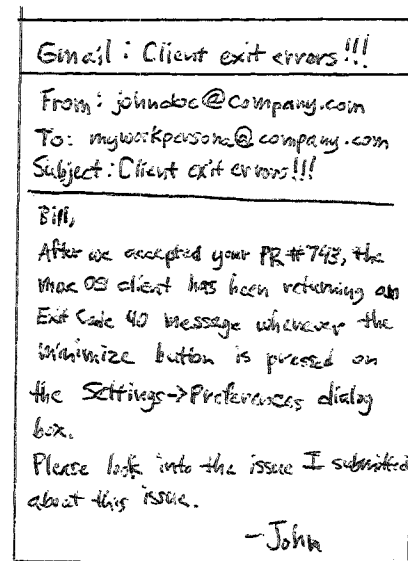 Gmail: Client exit errors!!!
From: johndoe@company.com
To: myworkpersona@company.com
Subject: Client exit errors!!!
Bill,
After we accepted your PR #743, the
Mac OS client has been returning an
Exit Code 40 message whenever the
minimize button is pressed on
the Settings->Preferences dialog
box.
Please look into the issue I submitted
about this issue.
-John